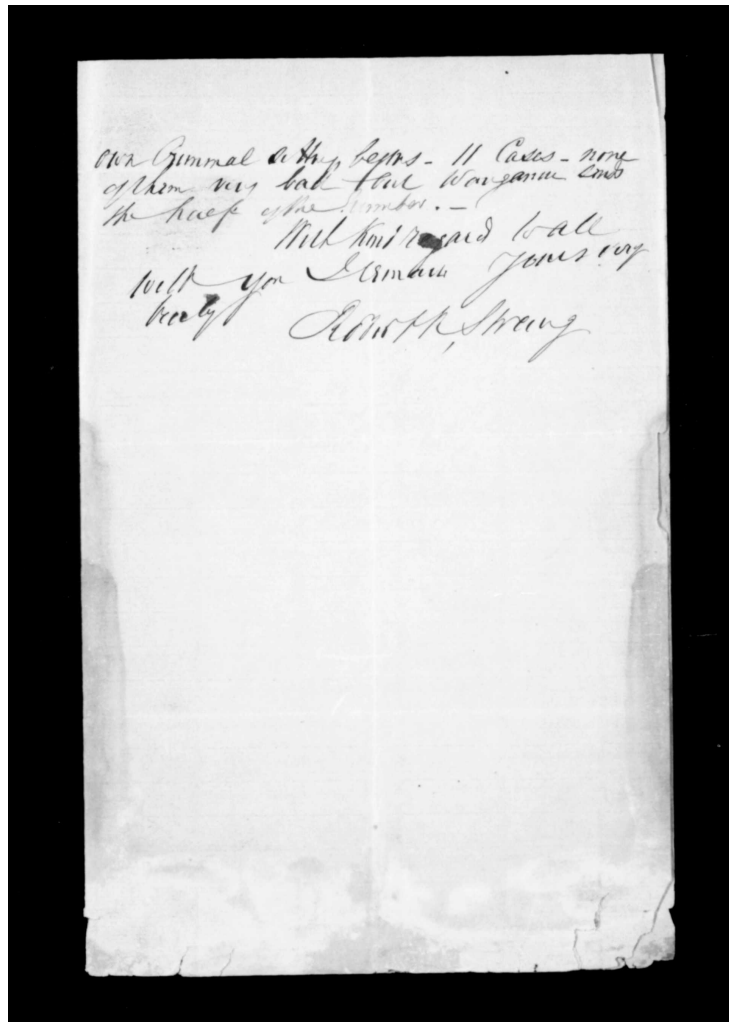 own Criminal sitting begins - 11 Cases - none
of them very bad but Wanganui sends
the half of the number. -
With Kind regard to all
with you I remain yours very
truly
Robert R, Strang